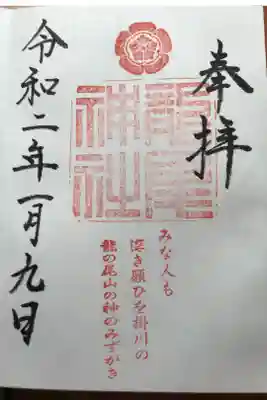 奉拝
龍尾神社
みな人も
深き願ひを掛川の
龍の尾山の神のみずがき
令和二年一月九日